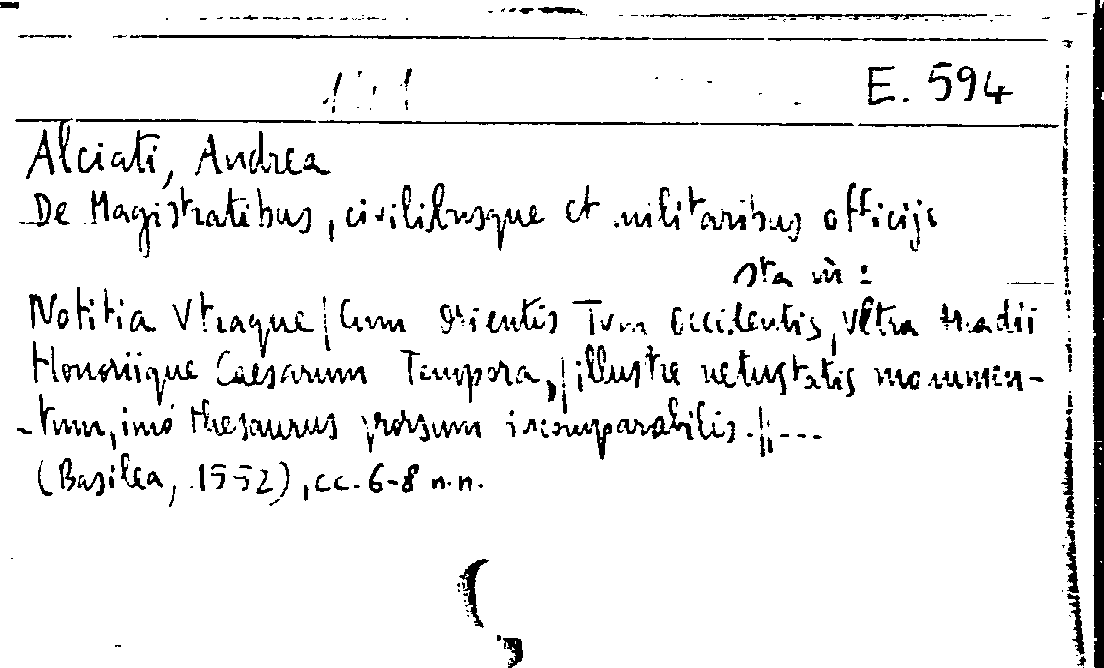 E. 594
Alciati, Andrea
De Magistratibus, civilibusque et militaribus officijs
sta in:
Notitia Vtraque | Cum Orientis Tum Occidentis, Vltra
Honoriique Caesarum Tempora, | illustre uetustatis monumen-
-tum, imò thesaurus prorsum incomparabilis. || ---
(Basilea, 1552), cc. 6-8 n.n.